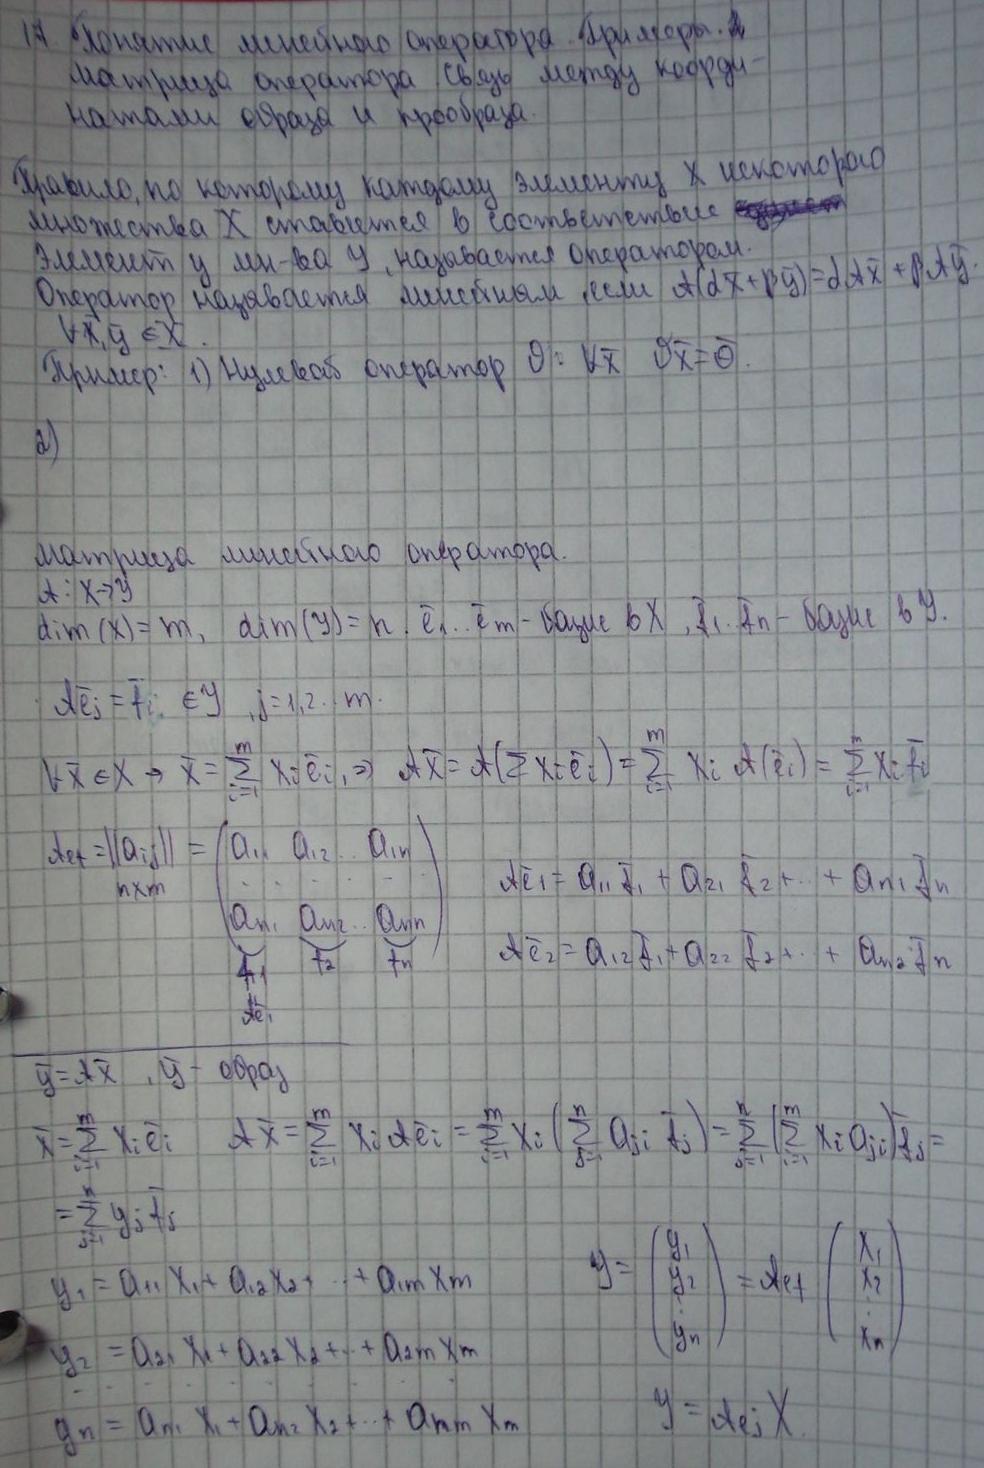 17. Понятие линейного оператора. Примеры.
Матрица оператора. Связь между коорди-
натами образа и прообраза.
Правило, по которому каждому элементу X некоторого
множества X ставится в соответствие
элемент y мн-ва Y, называется оператором.
Оператор называется линейным, если A(αx̄+βȳ)=αAx̄+βAȳ.
∀x̄,ȳ ∈ X.
Пример: 1) Нулевой оператор O: ∀x̄ Ox̄=Ō.
2)
Матрица линейного оператора.
A: X→Y
dim(X)=m, dim(Y)=n. ē₁..ēm - базис в X, f̄₁..f̄n - базис в Y.
Aēj = f̄j ∈Y, j=1,2..m.
∀x̄∈X → x̄ = ∑_{i=1}^{m} xiēi, ⇒ Ax̄ = A(∑xiēi) = ∑_{i=1}^{m} xi A(ēi) = ∑_{i=1}^{m} xi f̄i
Aef = ||aij|| = ( a₁₁ a₁₂ .. a₁n
n×m
Aē₁ = a₁₁f̄₁ + a₂₁f̄₂ + ... + an₁f̄n
an₁ an₂ .. ann )
f̄₁ f̄₂ f̄n
Aē₂ = a₁₂f̄₁ + a₂₂f̄₂ + ... + an₂f̄n
Aē₁
ȳ = Ax̄, ȳ - образ
x̄ = ∑_{i=1}^{m} xiēi Ax̄ = ∑_{i=1}^{m} xi Aēi = ∑_{i=1}^{m} xi (∑_{j=1}^{n} aji f̄j) = ∑_{j=1}^{n} (∑_{i=1}^{m} xi aji) f̄j =
= ∑_{j=1}^{n} yj f̄j
y₁ = a₁₁x₁ + a₁₂x₂ + ... + a₁m xm
y = ( y₁ y₂ . yn ) = Aef ( x₁ x₂ . xn )
y₂ = a₂₁x₁ + a₂₂x₂ + ... + a₂m xm
yn = an₁x₁ + an₂x₂ + ... + anm xm
Y = Aef X